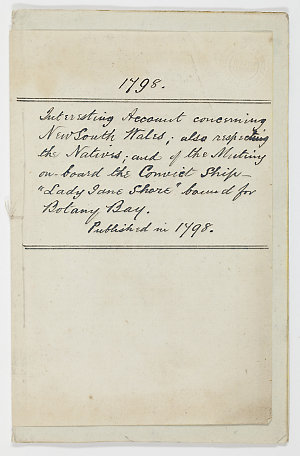 1798.
Interesting Account concerning
New South Wales; also respecting
the Natives; and of the Mutiny
on-board the Convict Ship-
"Lady Jane Shore" bound for
Botany Bay.
Published in 1798.